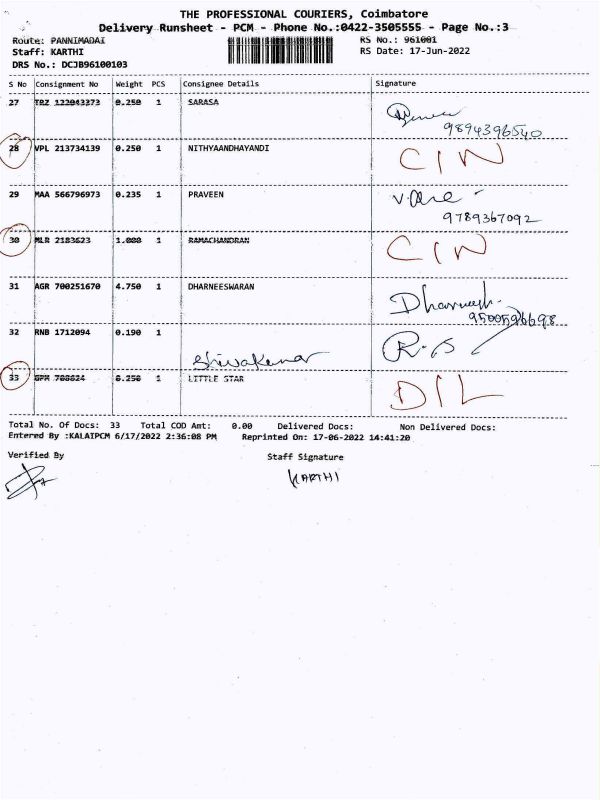 THE PROFESSIONAL COURIERS, Coimbatore
Delivery Runsheet - PCM - Phone No.:0422-3505555 - Page No.:3
Route: PANNIMADAI RS No.: 961001
Staff: KARTHI RS Date: 17-Jun-2022
DRS No.: DCJB96100103
S No Consignment No Weight PCS Consignee Details Signature
27 TRZ 122043373 0.250 1 SARASA
9894396540
28 VPL 213734139 0.250 1 NITHYAANDHAYANDI CIN
29 MAA 566796973 0.235 1 PRAVEEN
9789367092
30 MLR 2183623 1.000 1 RAMACHANDRAN CIN
31 AGR 700251670 4.750 1 DHARNEESWARAN
9500596698
32 RNB 1712094 0.190 1
Shivakumar
33 GPM 708624 0.250 1 LITTLE STAR DIL
Total No. Of Docs: 33 Total COD Amt: 0.00 Delivered Docs: Non Delivered Docs:
Entered By :KALAIPCM 6/17/2022 2:36:08 PM Reprinted On: 17-06-2022 14:41:20
Verified By Staff Signature
KARTHI